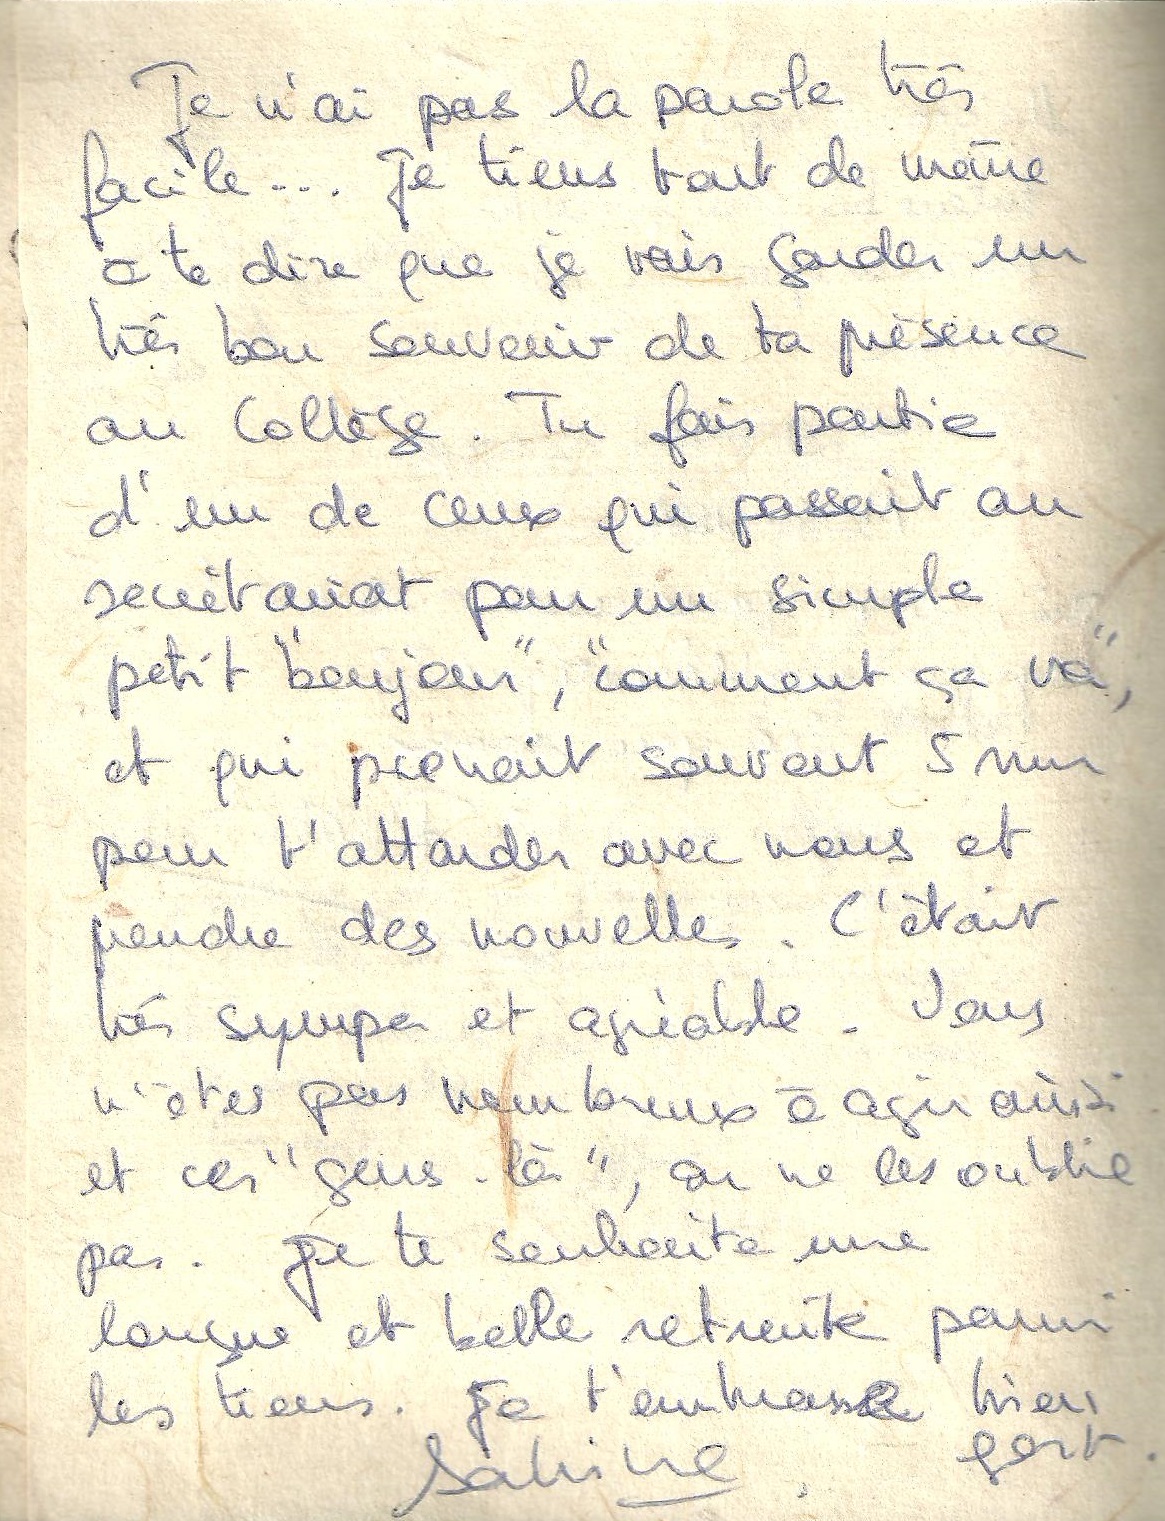 Je n'ai pas la parole très
facile... Je tiens tout de même
à te dire que je vais garder un
très bon souvenir de ta présence
au Collège. Tu fais partie
d'un de ceux qui passait au
secrétariat pour un simple
petit "bonjour", "comment ça va",
et qui prenait souvent 5 mn
pour t'attarder avec nous et
prendre des nouvelles. C'était
très sympa et agréable. Vous
n'êtes pas nombreux à agir ainsi
et ces "gens-là", on ne les oublie
pas. Je te souhaite une
longue et belle retraite parmi
les tiens. Je t'embrasse bien
fort.
Sabine